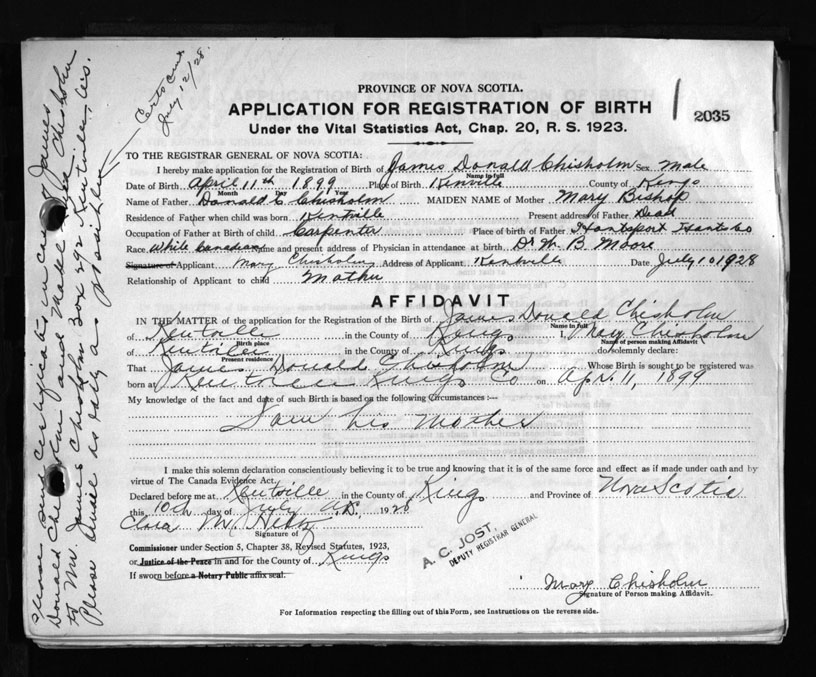 PROVINCE OF NOVA SCOTIA.
APPLICATION FOR REGISTRATION OF BIRTH
2035
Under the Vital Statistics Act, Chap. 20, R. S. 1923.
Certs Sent July 12/28.
TO THE REGISTRAR GENERAL OF NOVA SCOTIA:
I hereby make application for the Registration of Birth of James Donald Chisholm Sex Male
Name in full
Date of Birth April 11th 1899 Place of Birth Kenville County of Kings
Month Day Year
Name of Father Donald C Chisholm MAIDEN NAME of Mother Mary Bishop
Residence of Father when child was born Kentville Present address of Father Dead
Occupation of Father at Birth of child Carpenter Place of Birth of Father Hantsport
Race White Canadian Name and present address of Physician in attendance at birth Dr W. B. Moore
Signature of Applicant Mary Chisholm Address of Applicant Kentville Date July 10 1928
Relationship of Applicant to child Mother
AFFIDAVIT
IN THE MATTER of the application for the Registration of the Birth of James Donald Chisholm
Name in full
of Kentville in the County of Kings I, Mary Chisholm
Birth place Name of person making Affidavit
of Kentville in the County of Kings do solemnly declare:
Present residence
That James Donald Chisholm Whose Birth is sought to be registered was
born at Kentville Kings Co on Apr. 11, 1899
My knowledge of the fact and date of such Birth is based on the following Circumstances :—
I am his Mother
I make this solemn declaration conscientiously believing it to be true and knowing that it is of the same force and effect as if made under oath and by
virtue of The Canada Evidence Act.
Declared before me at Kentville in the County of Kings and Province of Nova Scotia
this 10th day of July A.D. 1928
Clara M.
Signature of
Commissioner under Section 5, Chapter 38, Revised Statutes, 1923,
or Justice of the Peace in and for the County of Kings
If sworn before a Notary Public affix seal.
A. C. JOST,
DEPUTY REGISTRAR GENERAL
Mary Chisholm
Signature of Person making Affidavit.
For Information respecting the filling out of this Form, see Instructions on the reverse side.
Please send certificates in care of James
Donald Chisholm and Mabel Chisholm
to Mr. James Chisholm Box 292 Kentville, N.S.
Please as early as possible